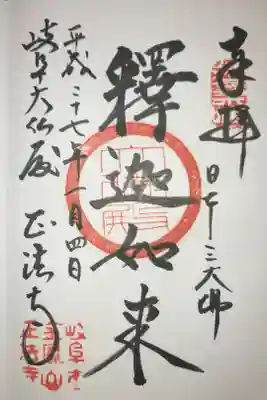 奉拝
日本三大佛
釋迦如来
平成二十七年一月四日
岐阜大仏殿 正法寺